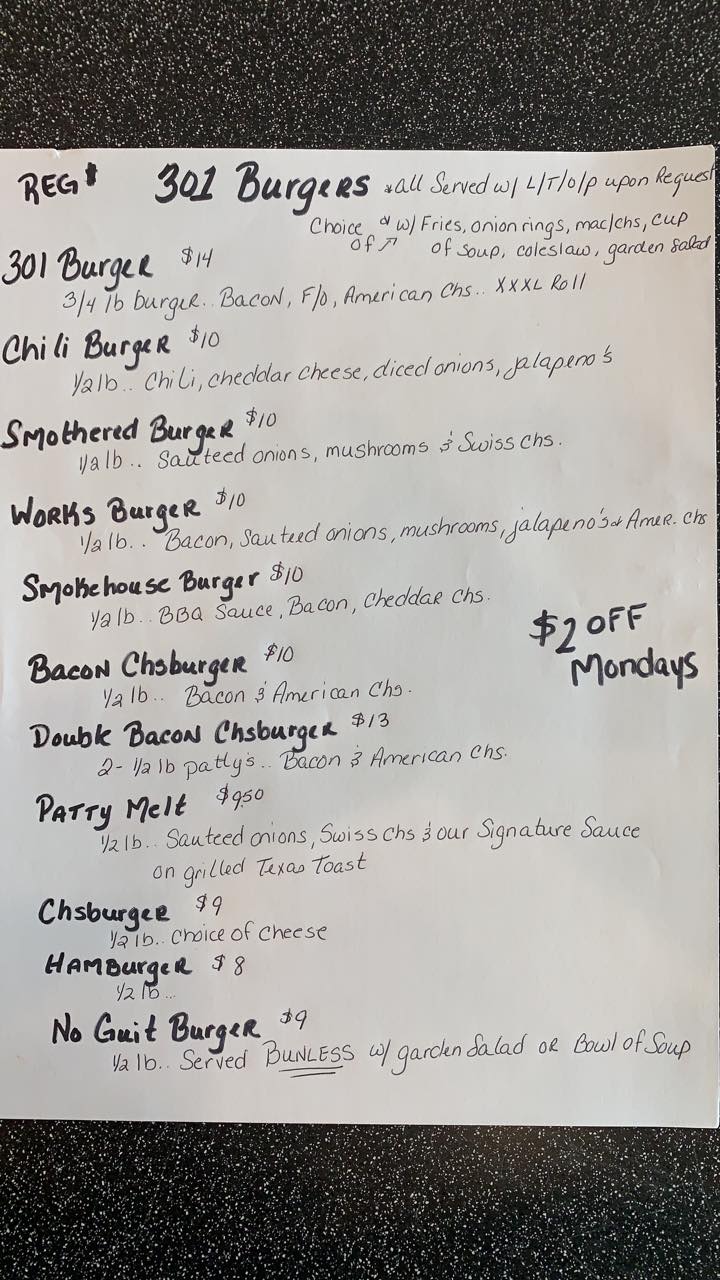 REG $ 301 Burgers *all Served w/ L/T/O/P upon Request
Choice of w/ Fries, onion rings, mac/chs, cup
of soup, coleslaw, garden salad
301 Burger $14
3/4 lb burger.. Bacon, F/O, American Chs.. XXXL Roll
Chili Burger $10
1/2 lb.. Chili, cheddar cheese, diced onions, jalapeno's
Smothered Burger $10
1/2 lb.. Sauteed onions, mushrooms & Swiss chs.
Works Burger $10
1/2 lb.. Bacon, Sauteed onions, mushrooms, jalapeno's & Amer. chs
Smokehouse Burger $10
1/2 lb.. BBQ Sauce, Bacon, Cheddar chs.
$2 OFF
Mondays
Bacon Chsburger $10
1/2 lb.. Bacon & American Chs.
Double Bacon Chsburger $13
2- 1/2 lb patty's.. Bacon & American Chs.
Patty Melt $9.50
1/2 lb.. Sauteed onions, Swiss chs & our Signature Sauce
on grilled Texas Toast
Chsburger $9
1/2 lb.. Choice of Cheese
Hamburger $8
1/2 lb...
No Guit Burger $9
1/2 lb.. Served BUNLESS w/ garden Salad OR Bowl of Soup